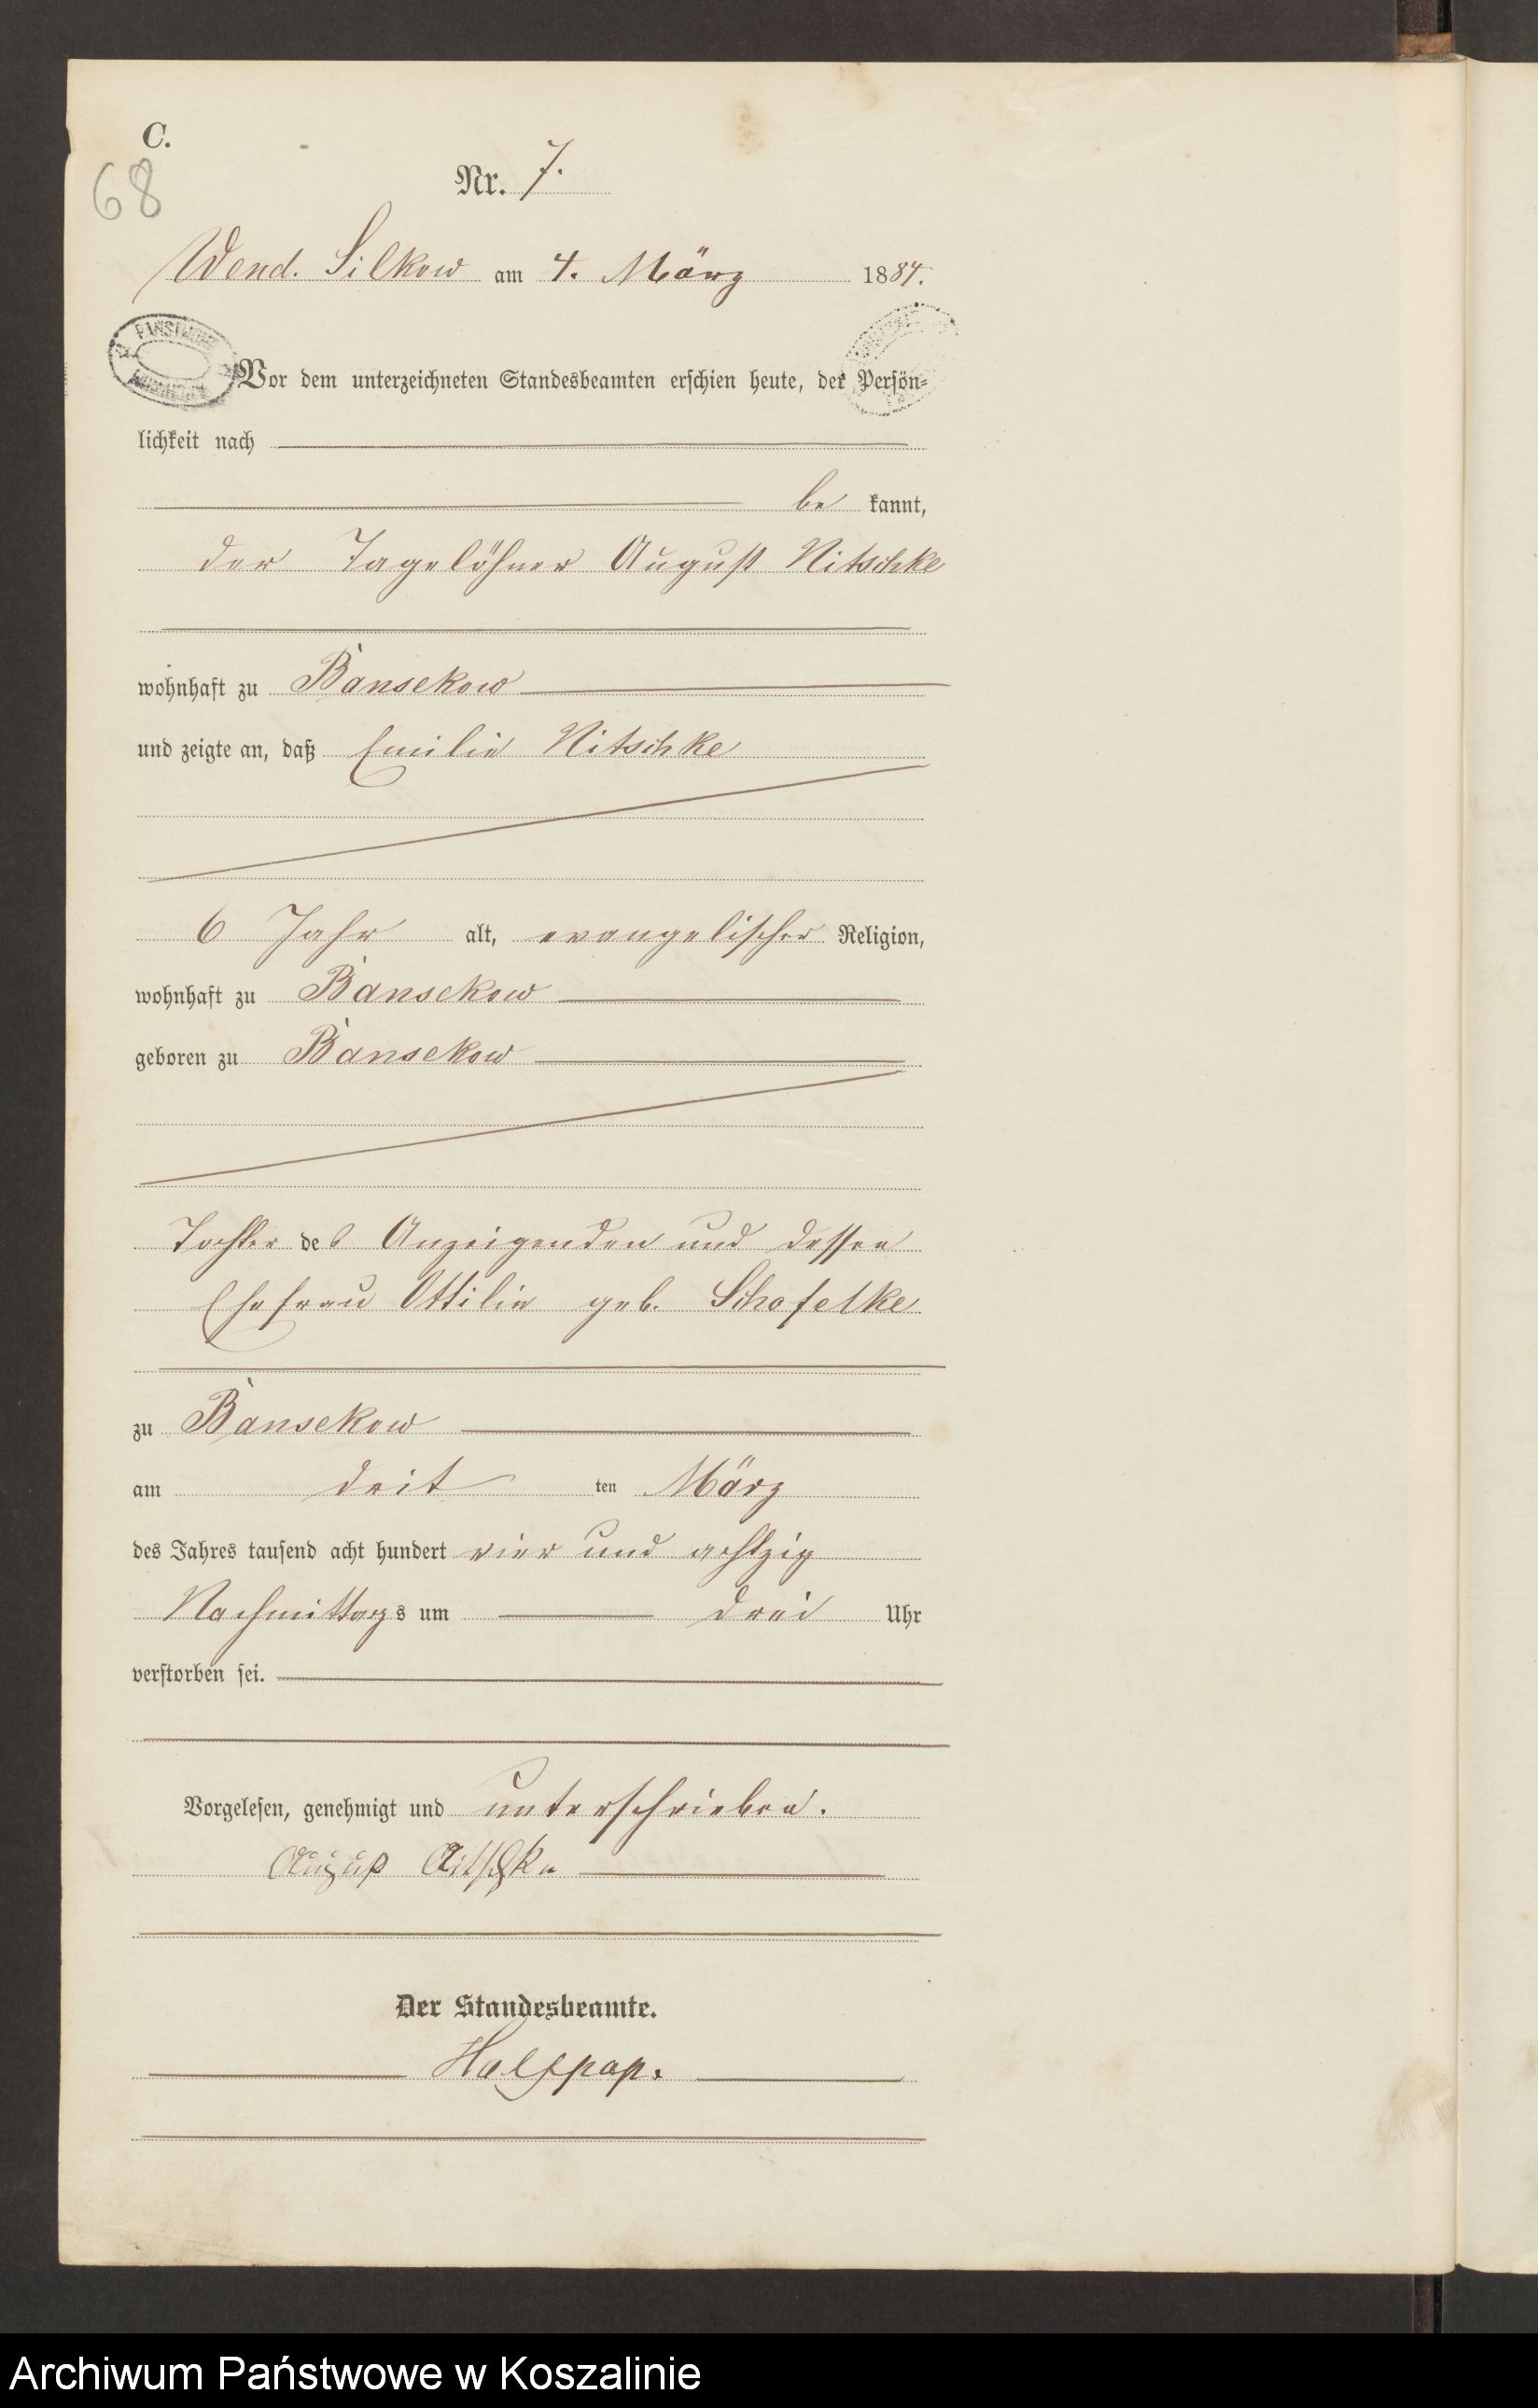 C.
68
Nr. 7.
Wend. Silkow am 4. März 1884.
Vor dem unterzeichneten Standesbeamten erschien heute, der Persön-
lichkeit nach
be kannt,
der Tagelöhner August Nitschke
wohnhaft zu Bansekow
und zeigte an, daß Emilie Nitschke
6 Jahr alt, evangelischer Religion,
wohnhaft zu Bansekow
geboren zu Bansekow
Tochter des Anzeigenden und dessen
Ehefrau Ottilie geb. Schofelke
zu Bansekow
am drit ten März
des Jahres tausend acht hundert vier und achtzig
Nachmittags um drei Uhr
verstorben sei.
Vorgelesen, genehmigt und unterschrieben.
August Nitschke
Der Standesbeamte.
Halfpap.
Archiwum Państwowe w Koszalinie